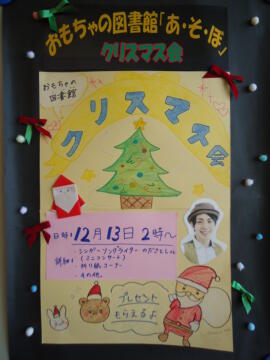 おもちゃの図書館「あ・そ・ぼ」
クリスマス会
おもちゃの
図書館
クリスマス会
日時: 12月13日 2時〜
詳細:
・シンガーソングライター のださとしくん
(ミニコンサート)
・折り紙コーナー
・その他。
プレゼント
もらえるよ